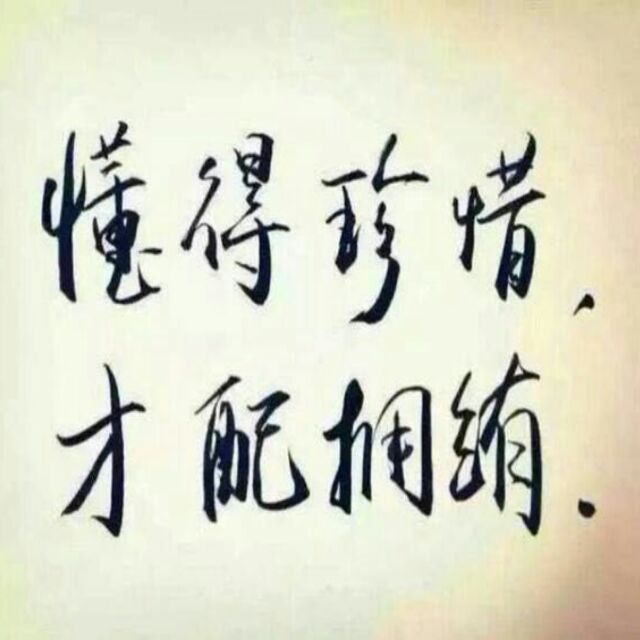 懂得珍惜、
才配拥有.